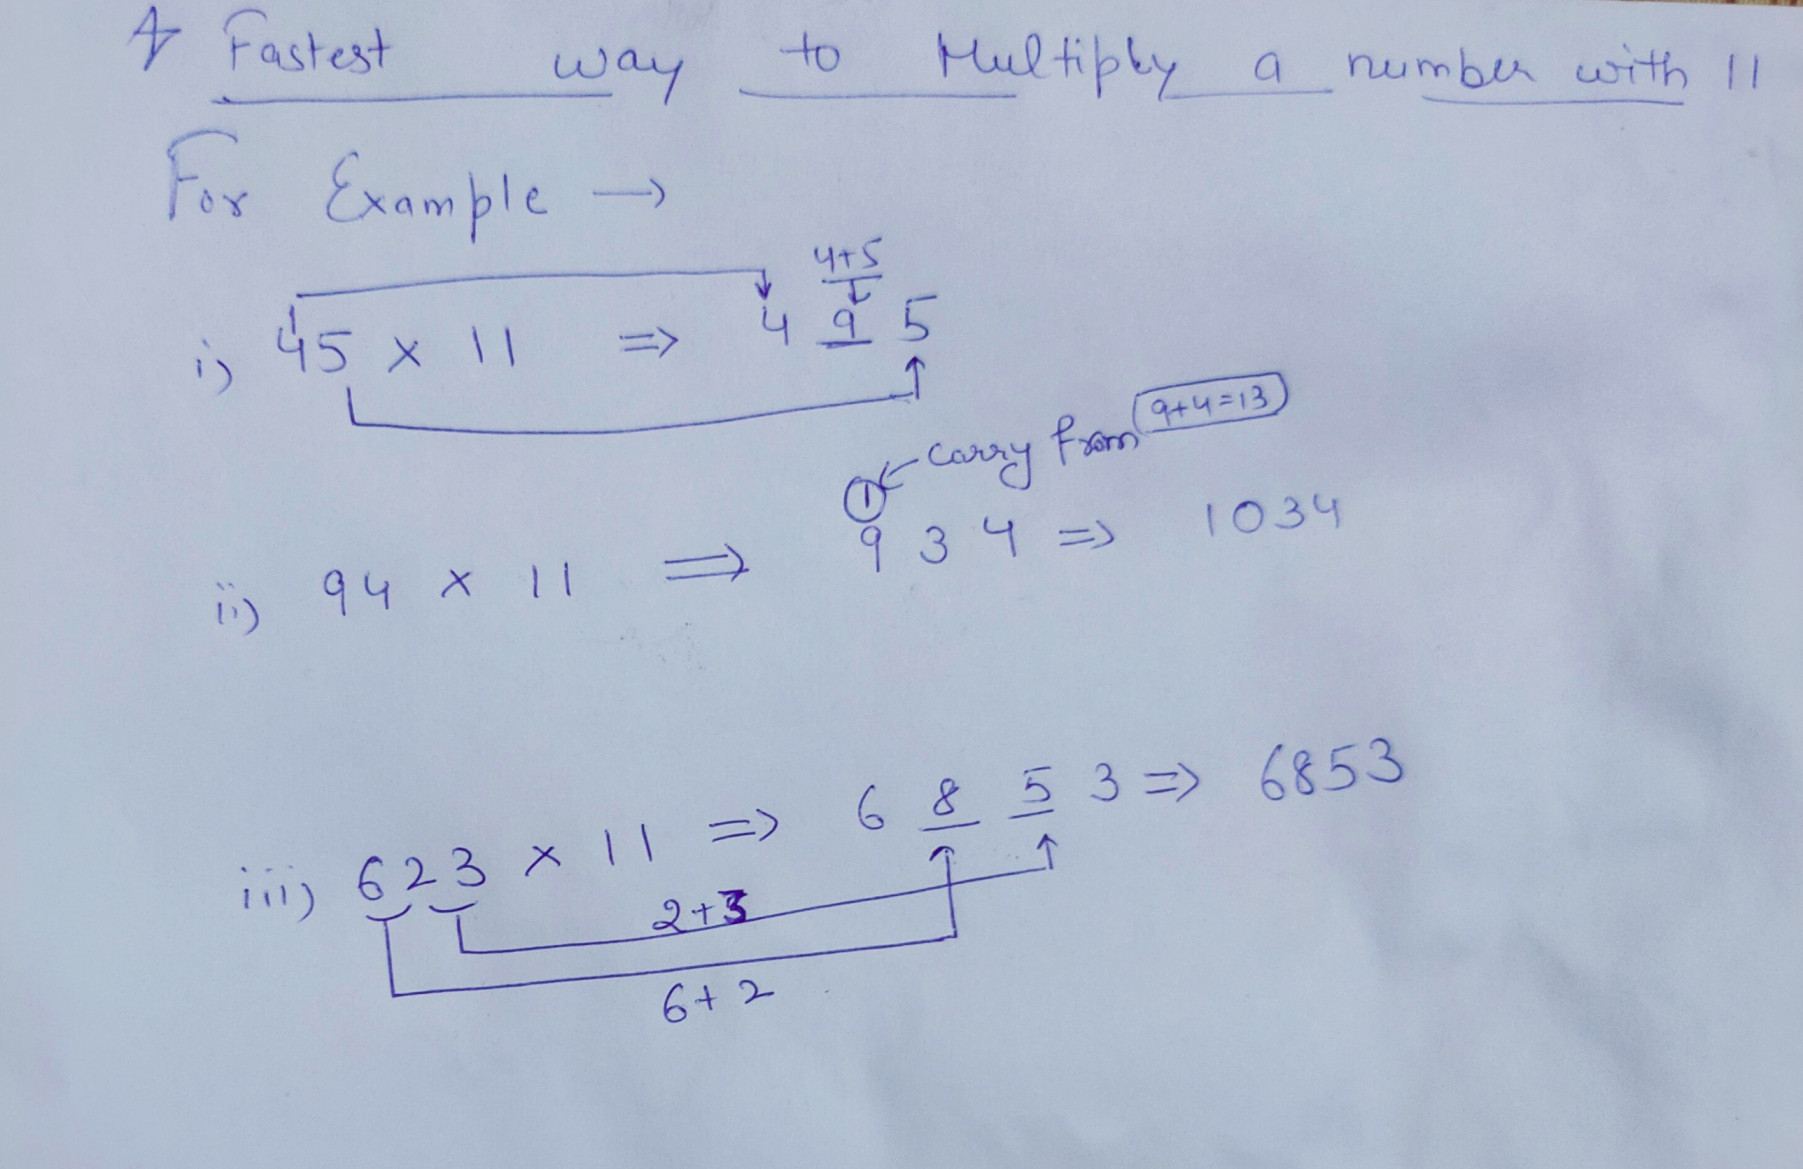 Fastest way to Multiply a number with 11
For Example →
4+5
i) 45 x 11 ⇒ 4 9 5
carry from 9+4=13
1
ii) 94 x 11 ⇒ 9 3 4 ⇒ 1034
iii) 623 x 11 ⇒ 6 8 5 3 ⇒ 6853
2+3
6+2